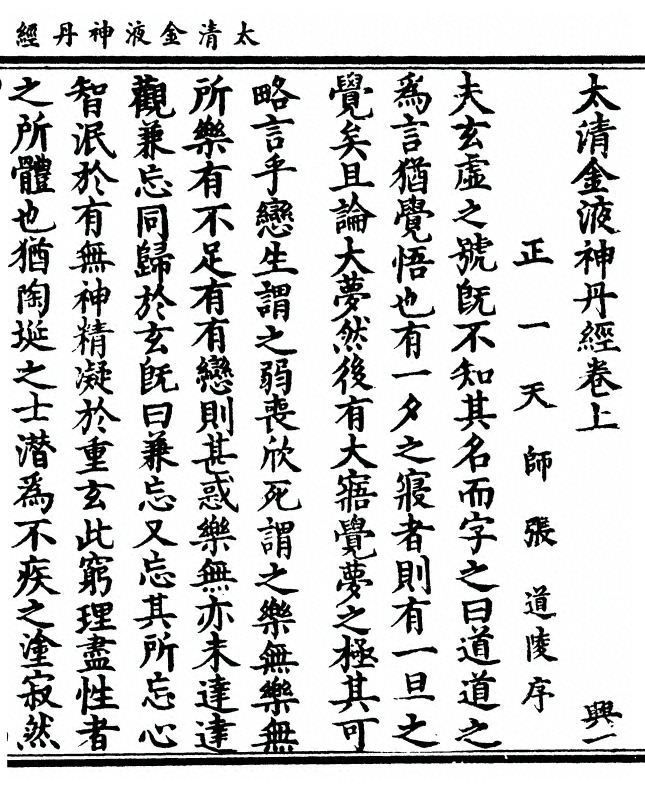 太清金液神丹經
太清金液神丹經卷上 興一
正一天師張道陵序
夫玄虛之號旣不知其名而字之曰道道之
爲言猶覺悟也有一夕之寢者則有一旦之
覺矣且論大夢然後有大寤覺夢之極其可
略言乎戀生謂之弱喪欣死謂之樂無樂無
所樂有不足有有戀則甚惑樂無亦未達達
觀兼忘同歸於玄旣曰兼忘又忘其所忘心
智泯於有無神精凝於重玄此窮理盡性者
之所體也猶陶埏之士潛爲不疾之塗寂然